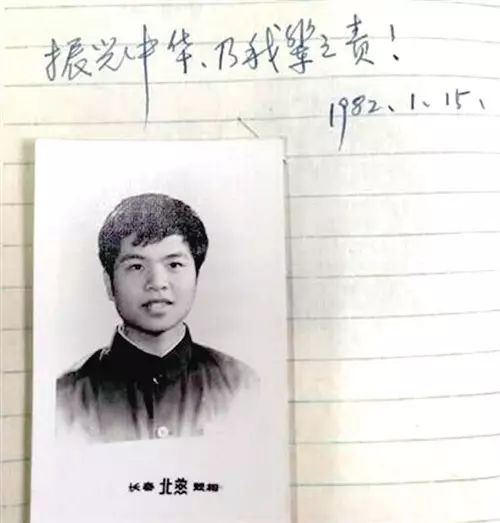 振兴中华、乃我辈之责！
1982.1.15.
长春 北葵 照相